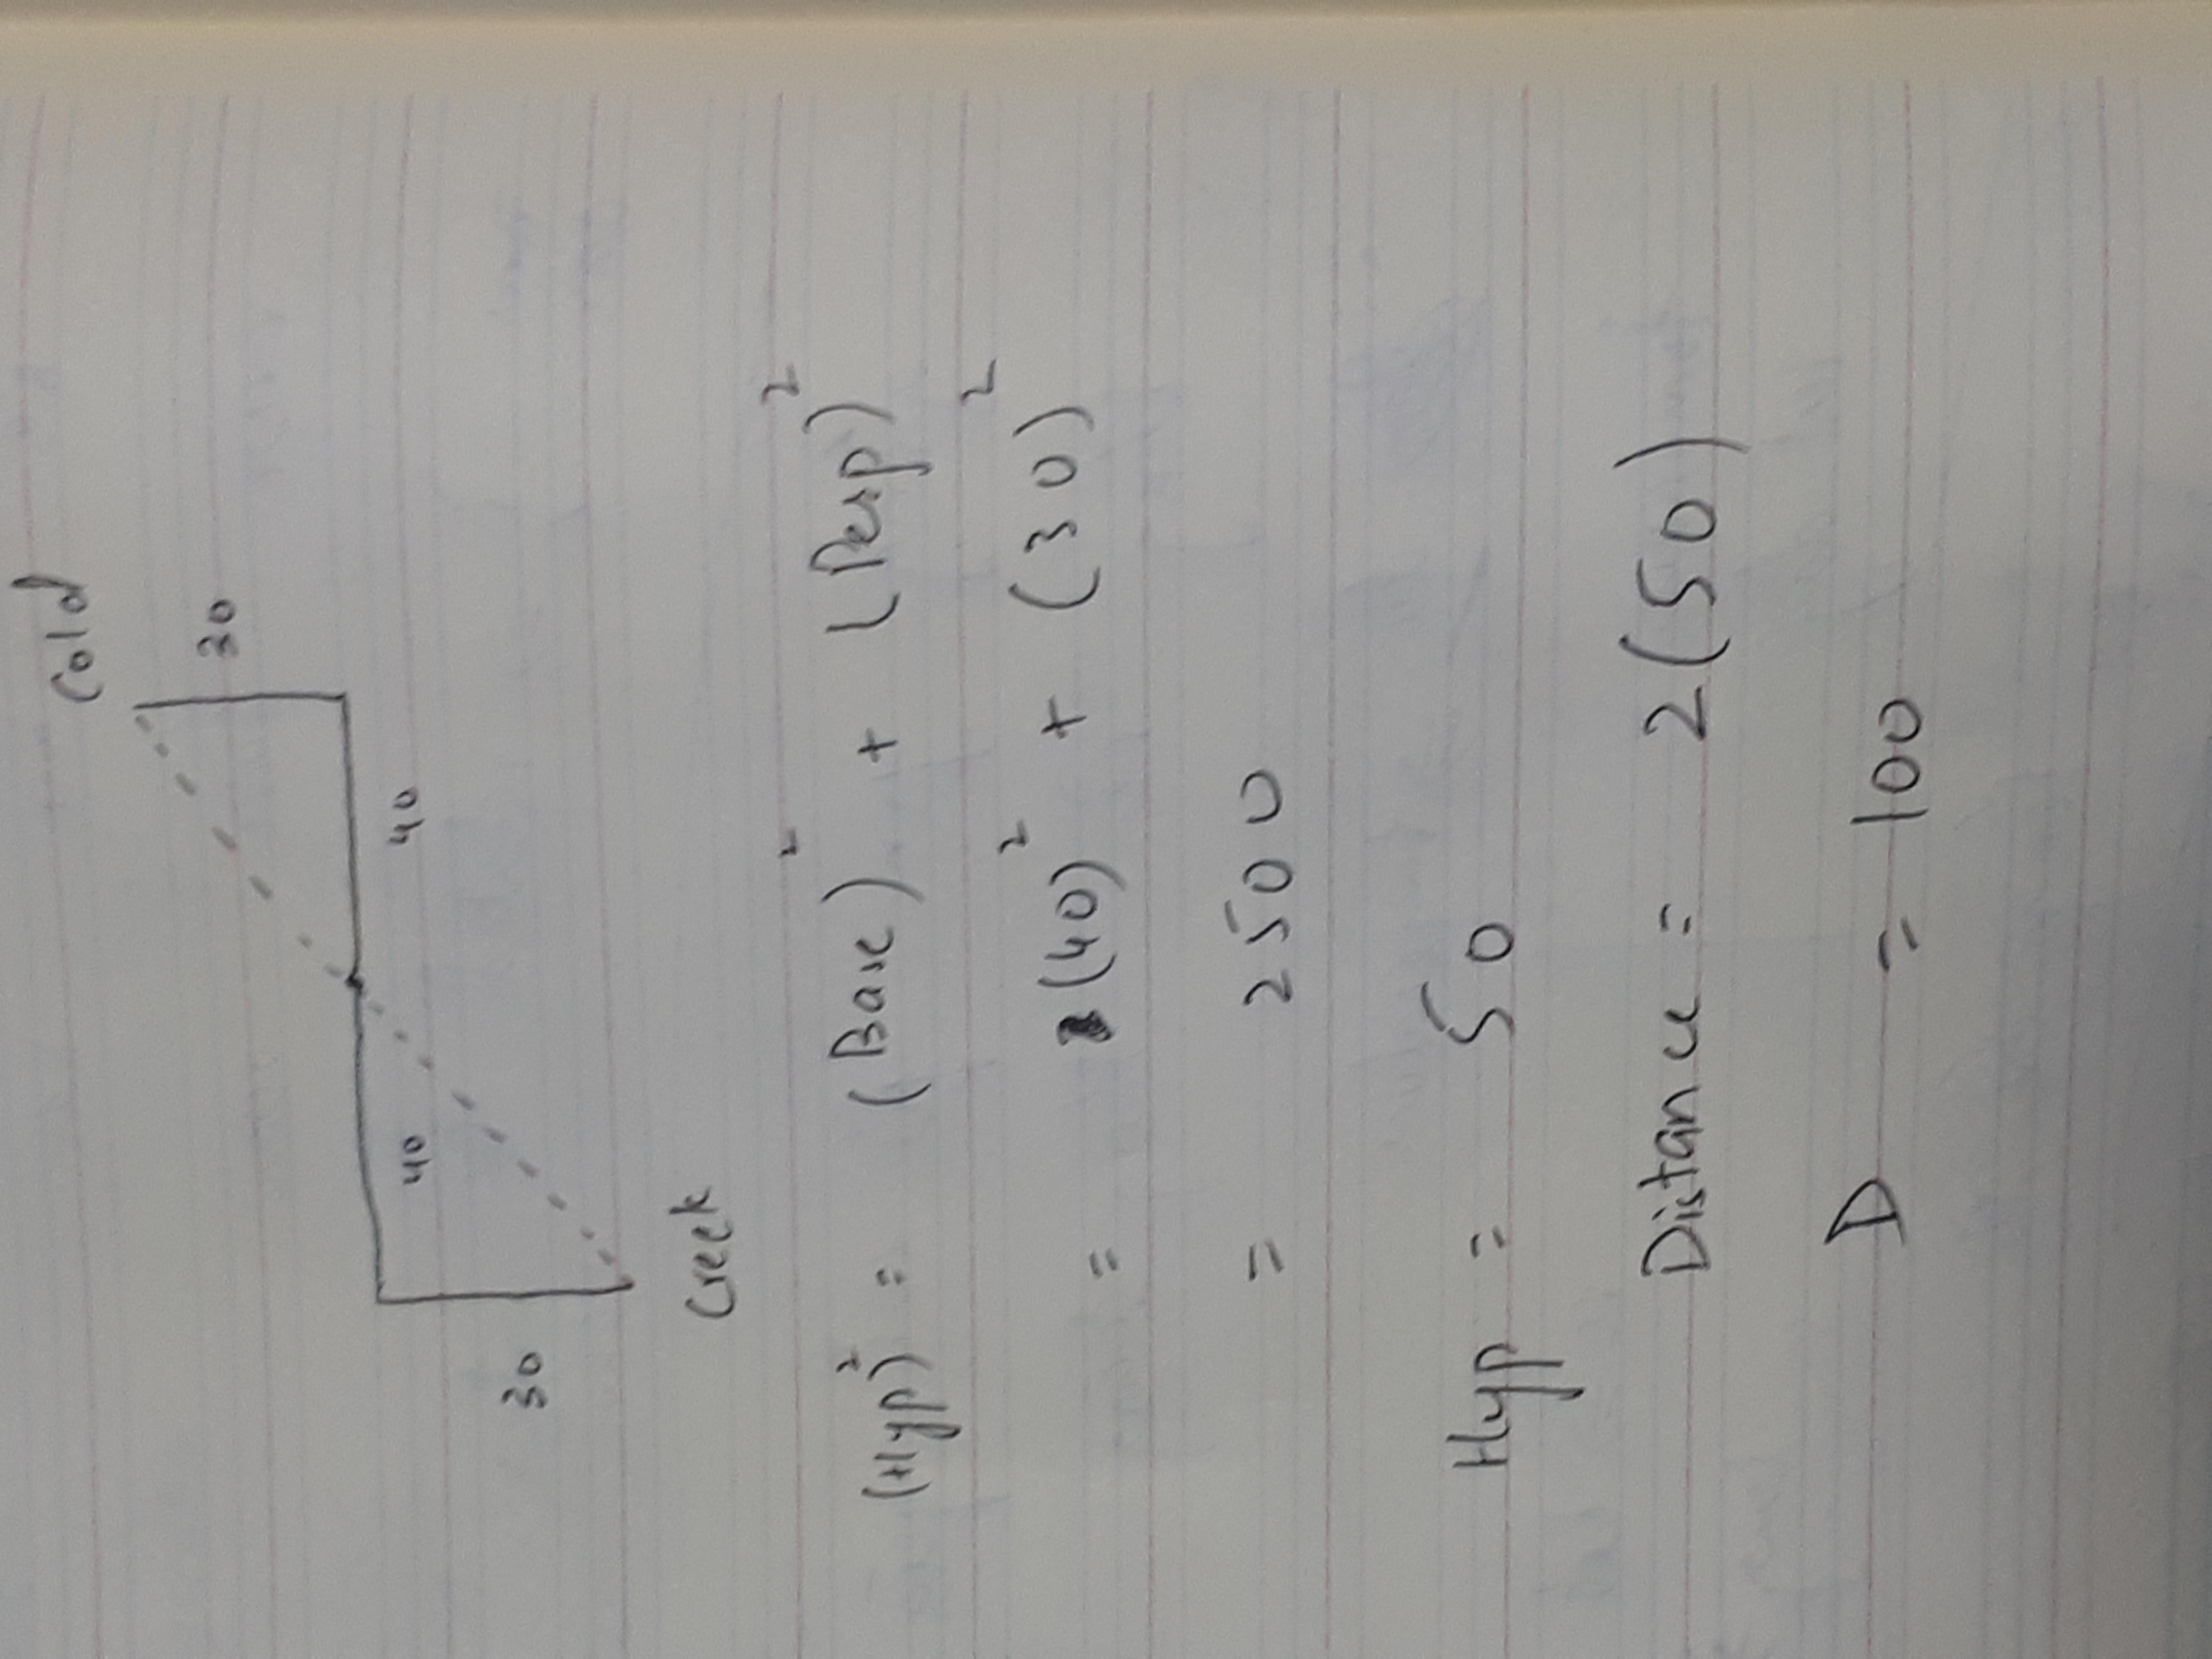 Cold
30
40
40
30
Creek
(Hyp)² = (Base)² + (Perp)²
= (40)² + (30)²
= 2500
Hyp = 50
Distance = 2(50)
D = 100